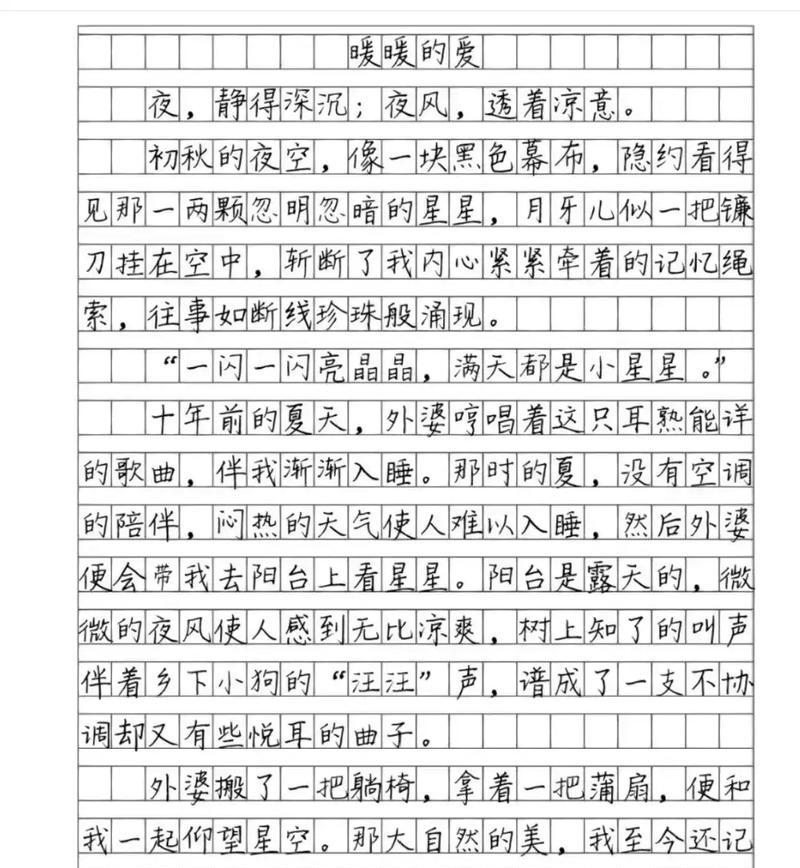 暖暖的爱
夜，静得深沉；夜风，透着凉意。
初秋的夜空，像一块黑色幕布，隐约看得
见那一两颗忽明忽暗的星星，月牙儿似一把镰
刀挂在空中，斩断了我内心紧紧牵着的记忆绳
索，往事如断线珍珠般涌现。
“一闪一闪亮晶晶，满天都是小星星。”
十年前的夏天，外婆哼唱着这只耳熟能详
的歌曲，伴我渐渐入睡。那时的夏，没有空调
的陪伴，闷热的天气使人难以入睡，然后外婆
便会带我去阳台上看星星。阳台是露天的，微
微的夜风使人感到无比凉爽，树上知了的叫声
伴着乡下小狗的“汪汪”声，谱成了一支不协
调却又有些悦耳的曲子。
外婆搬了一把躺椅，拿着一把蒲扇，便和
我一起仰望星空。那大自然的美，我至今还记